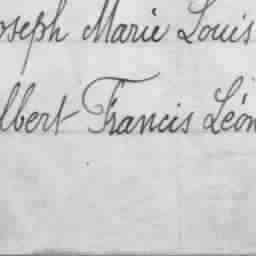 oseph Marie Louis
lbert Francis Léon